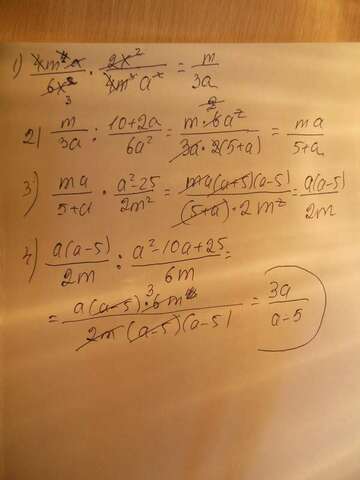 1) 4m²a/6x² · 2x²/4m a² = m/3a
2) m/3a : 10+2a/6a² = m·6a²/3a·2(5+a) = ma/5+a
3) ma/5+a · a²-25/2m² = ma(a+5)(a-5)/(5+a)·2m² = a(a-5)/2m
4) a(a-5)/2m : a²-10a+25/6m =
= a(a-5)·6m/2m(a-5)(a-5) = 3a/a-5